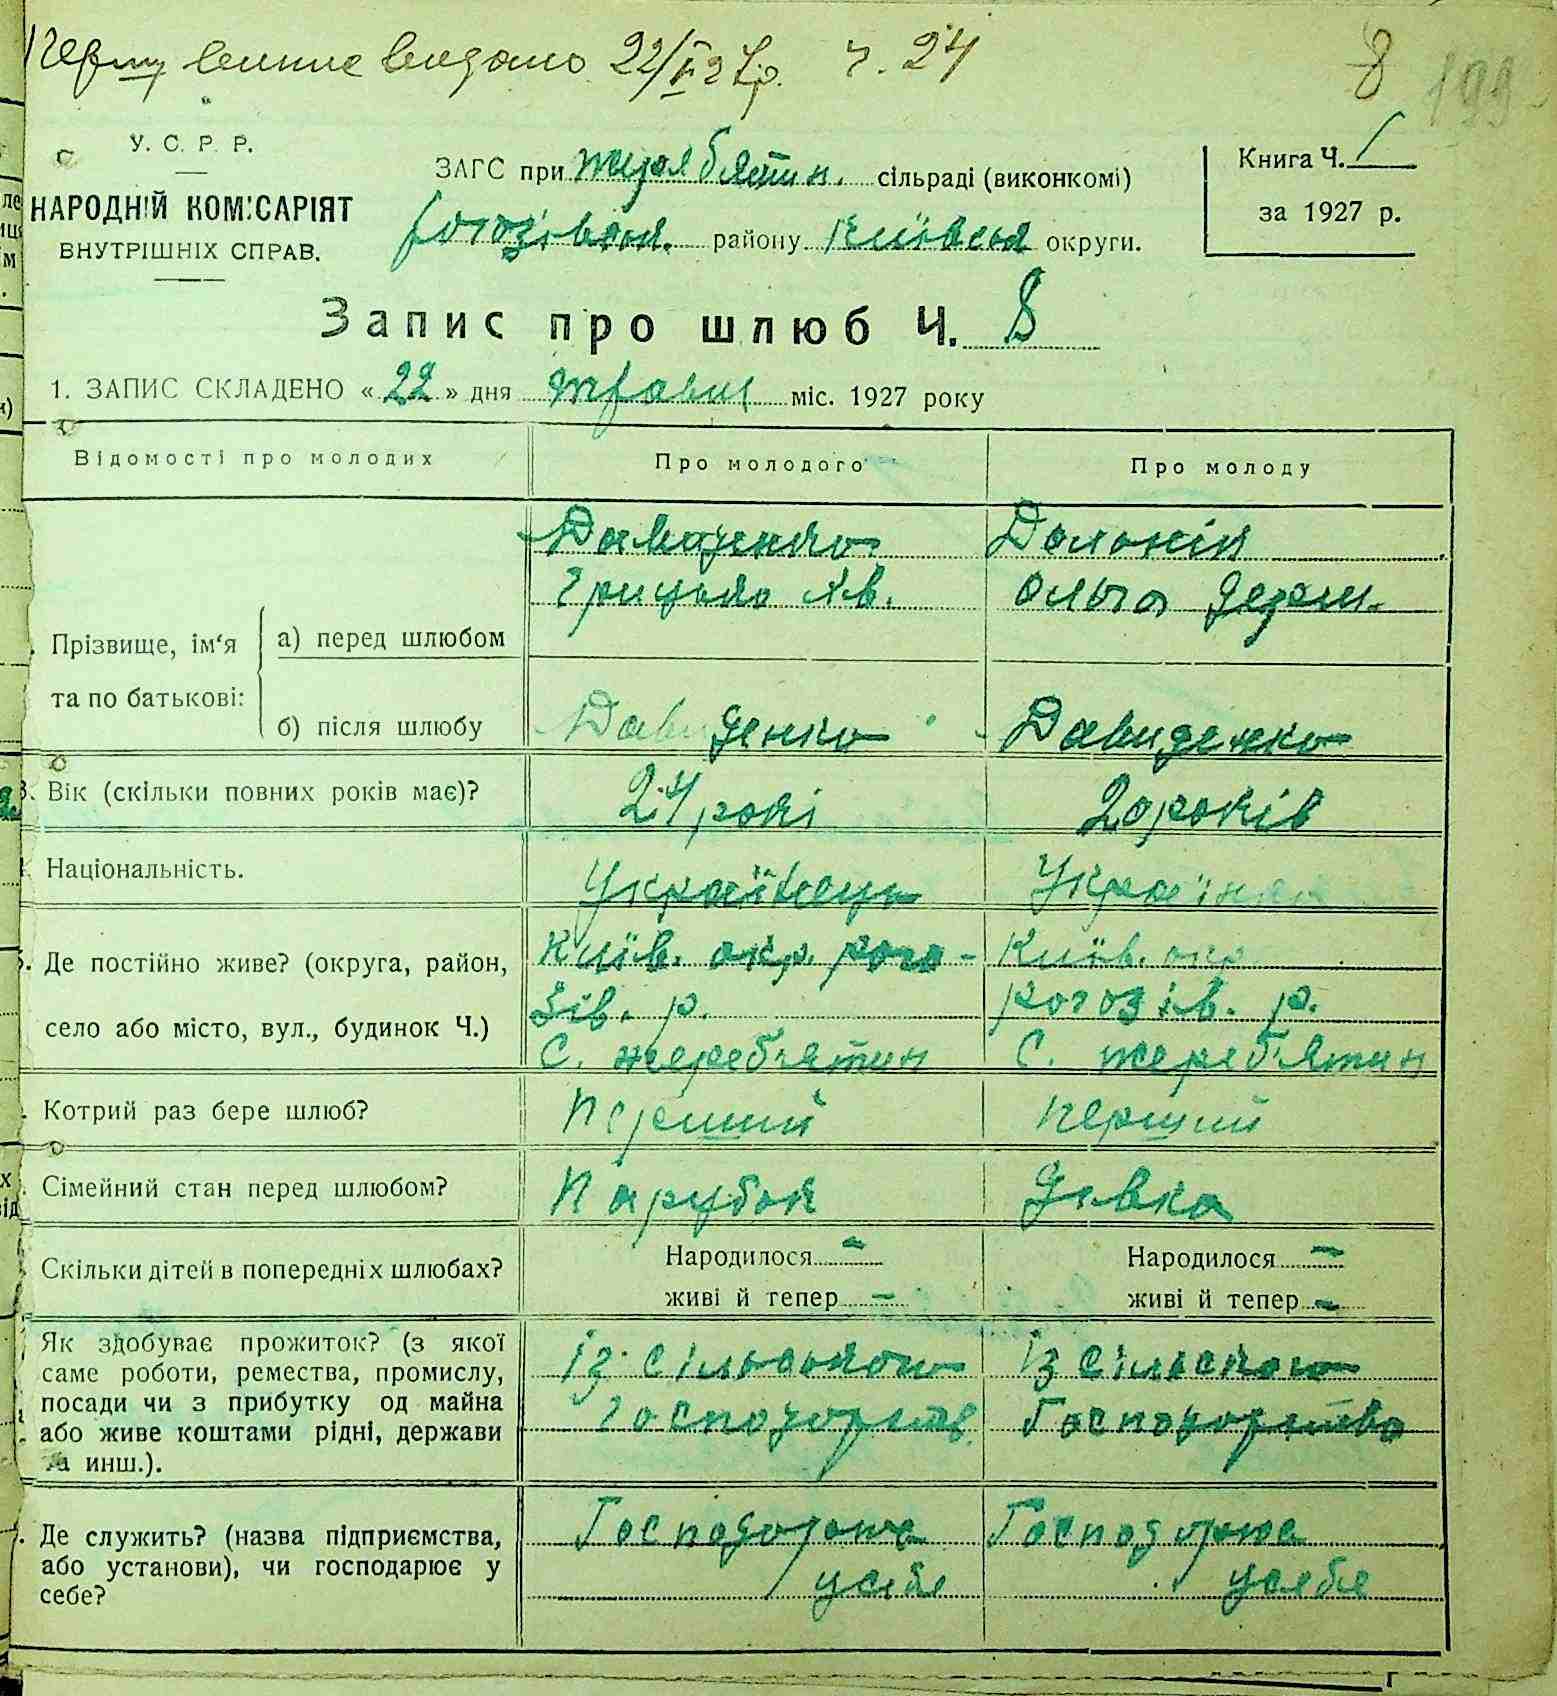 виписк видано 22/V 27р. ч. 24
8 199
У. С. Р. Р.
НАРОДНІЙ КОМІСАРІЯТ
ВНУТРІШНІХ СПРАВ.
ЗАГС при жереб'ятин. сільраді (виконкомі)
рогозівськ. району київськ округи.
Книга Ч. 1
за 1927 р.
Запис про шлюб Ч. 8
1. ЗАПИС СКЛАДЕНО « 22 » дня травня міс. 1927 року
Відомості про молодих Про молодого Про молоду
Прізвище, ім'я та по батькові:
а) перед шлюбом
Давиденко
Грицько Яв.
Ольга Дедем.
б) після шлюбу Давиденко Давиденко
3. Вік (скільки повних років має)? 24 роки 20 років
Національність. Українець Українка
Де постійно живе? (округа, район,
село або місто, вул., будинок Ч.)
Київ. окр. рого-
зів. р.
С. жереб'ятин
Київ. окр.
рогозів. р.
С. жереб'ятин
Котрий раз бере шлюб? Перший перший
Сімейний стан перед шлюбом? Парубок Дівка
Скільки дітей в попередніх шлюбах? Народилося – Народилося –
живі й тепер – живі й тепер –
Як здобуває прожиток? (з якої
саме роботи, ремества, промислу,
посади чи з прибутку од майна
або живе коштами рідні, держави
та инш.).
із сільського
господарств
із сільского
Господарства
Де служить? (назва підприємства,
або установи), чи господарює у
себе?
Господарює
у себе
Господарює
у себе